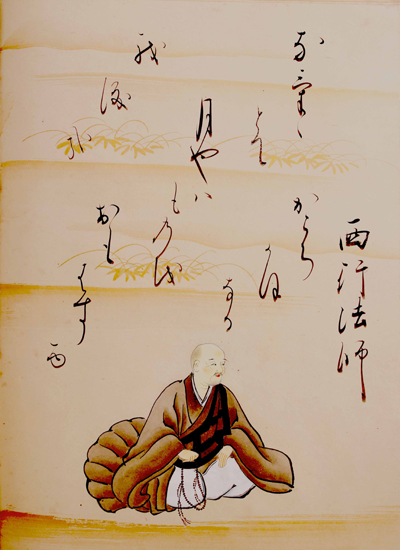 西行法師
なけゝ
とて
月やハ
ものを
おも
はす
る
かこち
かほ
なる
我
涙